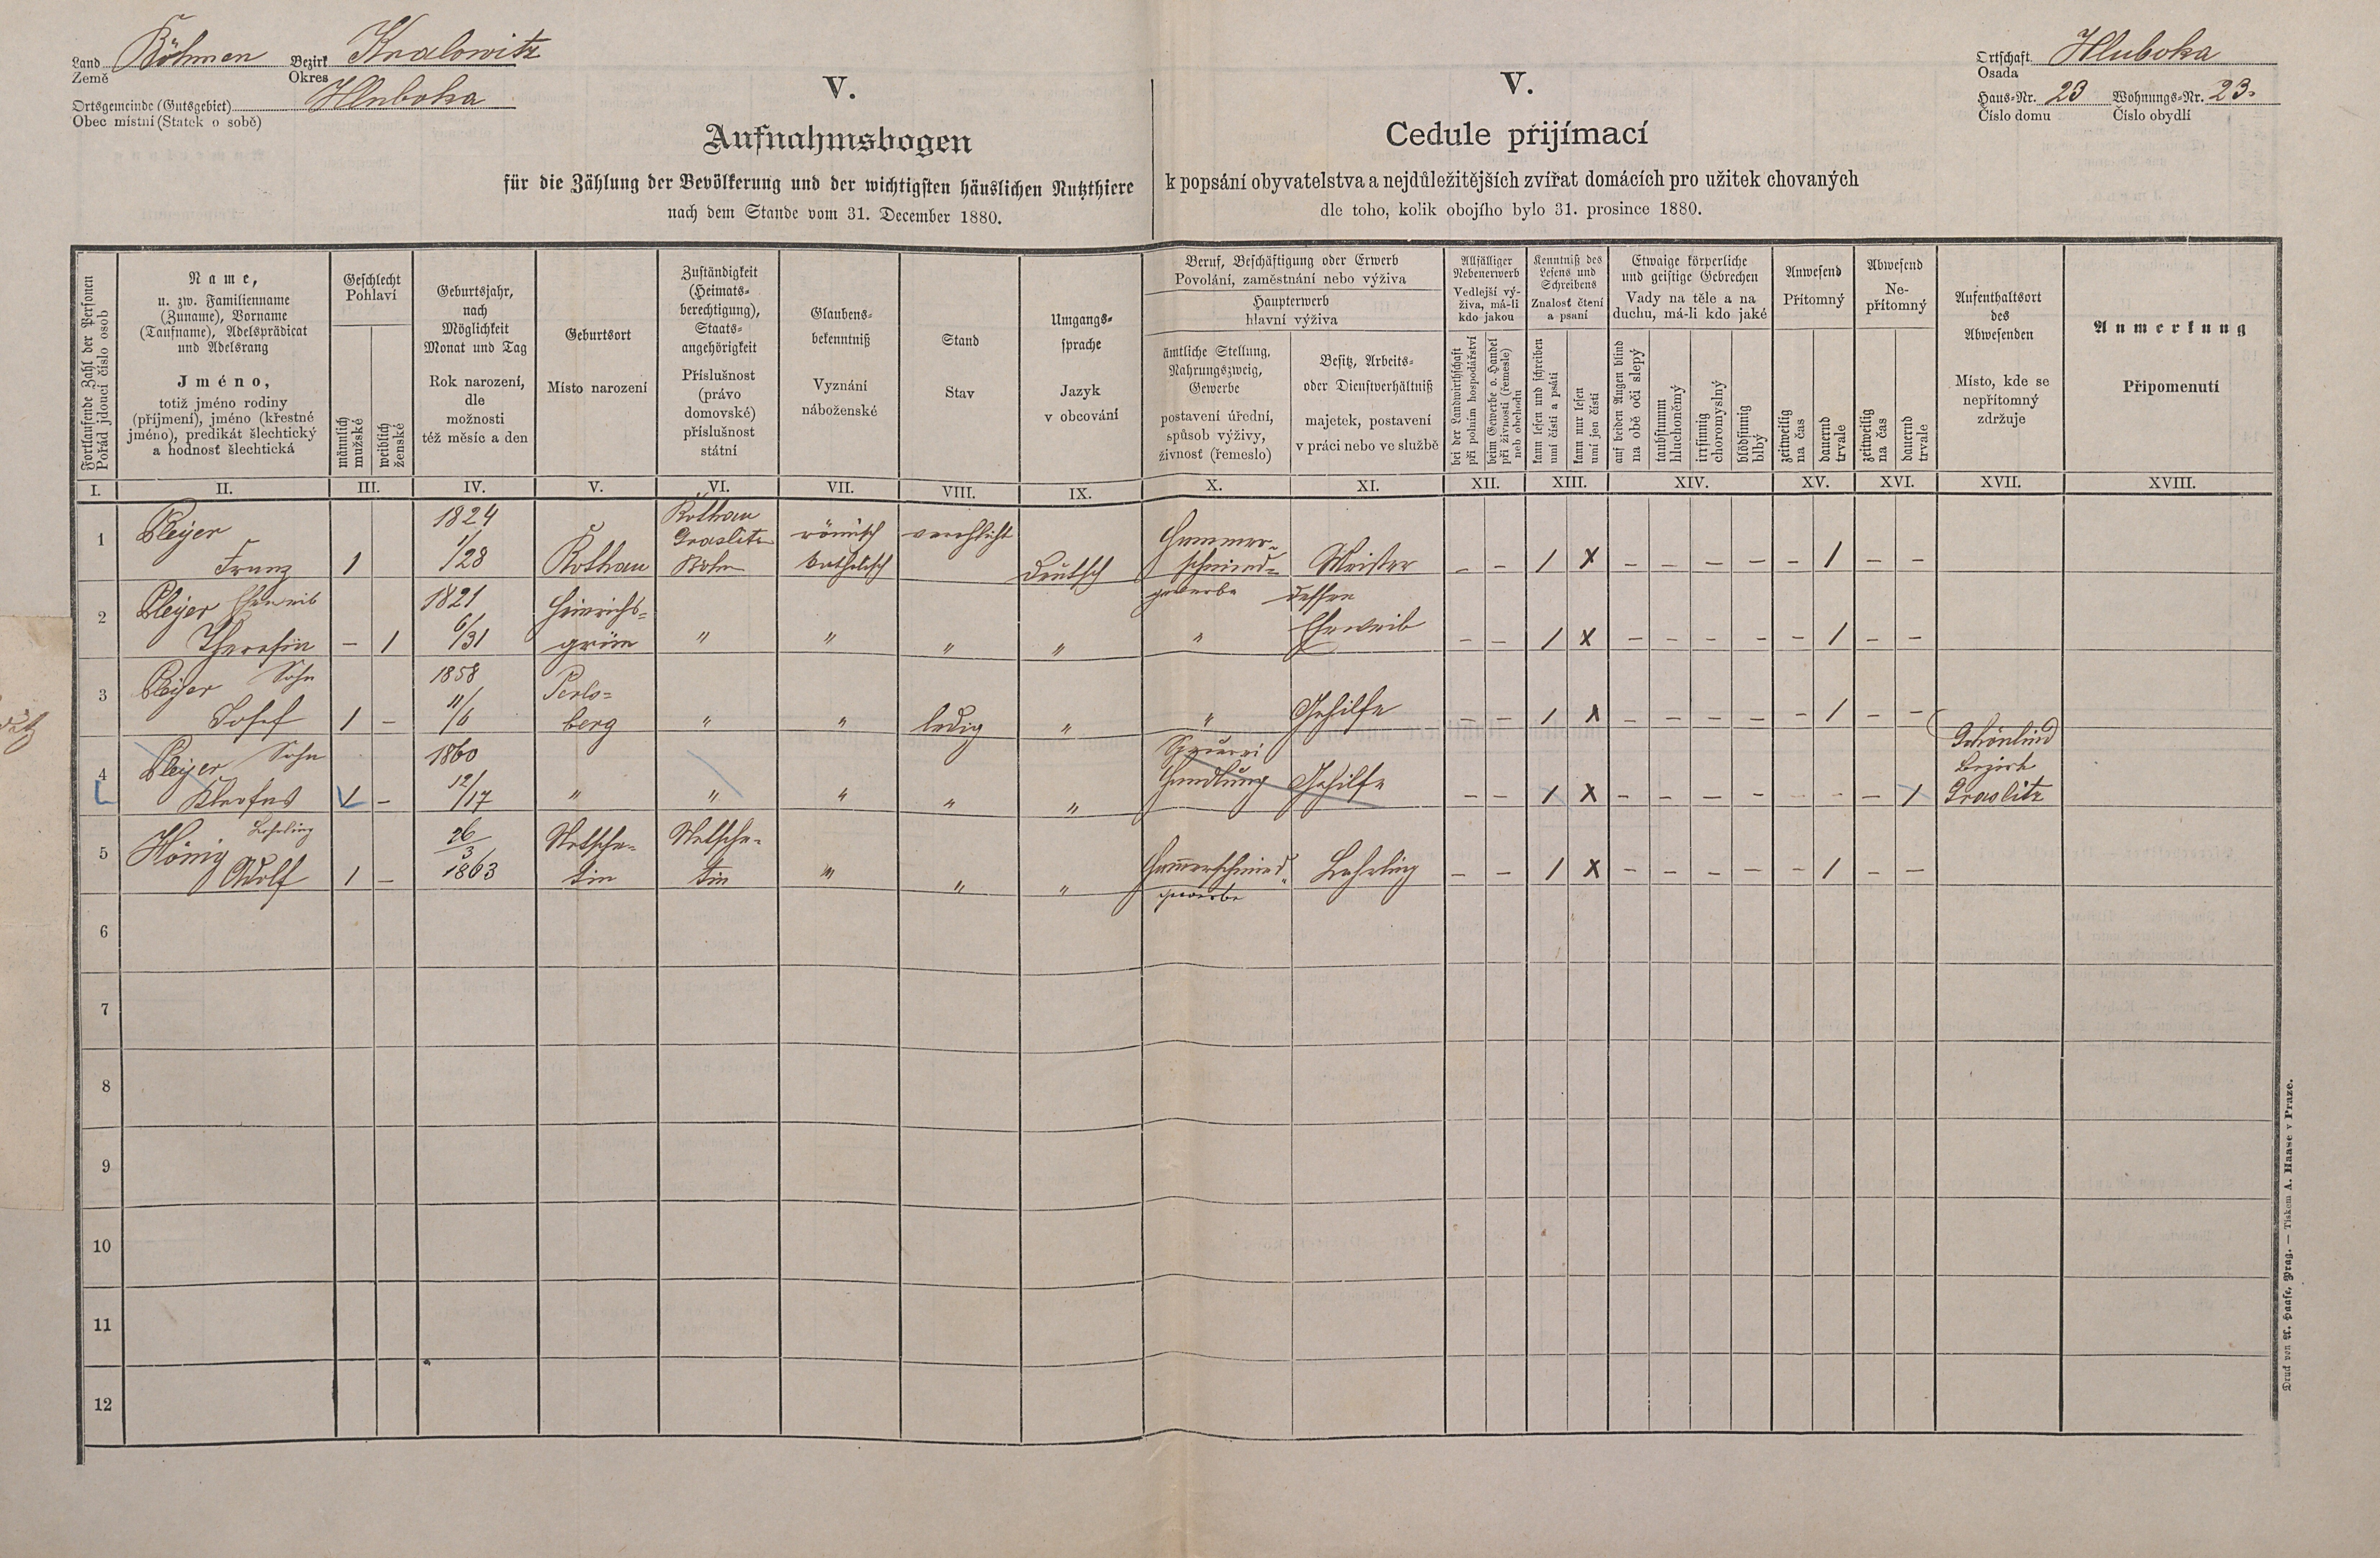 Land Böhmen Bezirk Kralowitz
Země Okres
Ortsgemeinde (Gutsgebiet) Hluboka
Obec místní (Statek o sobě)
V.
Aufnahmsbogen
für die Zählung der Bevölkerung und der wichtigsten häuslichen Nutzthiere
nach dem Stande vom 31. December 1880.
V.
Cedule přijímací
k popsání obyvatelstva a nejdůležitějších zvířat domácích pro užitek chovaných
dle toho, kolik obojího bylo 31. prosince 1880.
Ortschaft Hluboka
Osada
Haus-Nr. 23 Wohnungs-Nr. 23.
Číslo domu Číslo obydlí
Fortlaufende Zahl der Personen
Pořád jdoucí číslo osob
Name,
u. zw. Familienname
(Zuname), Vorname
(Taufname), Adelsprädicat
und Adelsrang
Jméno,
totiž jméno rodiny
(příjmení), jméno (křestné
jméno), predikát šlechtický
a hodnosť šlechtická
Geschlecht
Pohlaví
männlich
mužské
weiblich
ženské
Geburtsjahr,
nach
Möglichkeit
Monat und Tag
Rok narození,
dle
možnosti
též měsíc a den
Geburtsort
Místo narození
Zuständigkeit
(Heimats-
berechtigung),
Staats-
angehörigkeit
Příslušnost
(právo
domovské)
příslušnost
státní
Glaubens-
bekenntniß
Vyznání
náboženské
Stand
Stav
Umgangs-
sprache
Jazyk
v obcování
Beruf, Beschäftigung oder Erwerb
Povolání, zaměstnání nebo výživa
Haupterwerb
hlavní výživa
ämtliche Stellung,
Nahrungszweig,
Gewerbe
postavení úřední,
spůsob výživy,
živnosť (řemeslo)
Besitz, Arbeits-
oder Dienstverhältniß
majetek, postavení
v práci nebo ve službě
Allfälliger
Nebenerwerb
Vedlejší vý-
živa, má-li
kdo jakou
bei der Landwirthschaft
při polním hospodářství
beim Gewerbe o. Handel
při živnosti (řemesle)
neb obchodu
Kenntniß des
Lesens und
Schreibens
Znalosť čtení
a psaní
kann lesen und schreiben
umí čísti a psáti
kann nur lesen
umí jen čísti
Etwaige körperliche
und geistige Gebrechen
Vady na těle a na
duchu, má-li kdo jaké
auf beiden Augen blind
na obě oči slepý
taubstumm
hluchoněmý
irrsinnig
choromyslný
blödsinnig
blbý
Anwesend
Přítomný
zeitweilig
na čas
dauernd
trvale
Abwesend
Ne-
přítomný
zeitweilig
na čas
dauernd
trvale
Aufenthaltsort
des
Abwesenden
Místo, kde se
nepřítomný
zdržuje
Anmerkung
Připomenutí
I. II. III. IV. V. VI. VII. VIII. IX. X. XI. XII. XIII. XIV. XV. XVI. XVII. XVIII.
1 Pleyer Franz 1 1824 1/28 Rothau Rothau Graslitz Böhm römisch katholisch verehlicht Deutsch Hammer-schmied-gewerbe Meister – – 1 X – – – – – 1 – –
2 Pleyer Eheweib Theresia – 1 1821 6/31 Heinrichs-grün " " " " " dessen Eheweib – – 1 X – – – – – 1 – –
3 Pleyer Sohn Josef 1 – 1858 11/6 Perls-berg " " ledig " " Gehilfe – – 1 X – – – – – 1 – –
4 Pleyer Sohn Kleofas 1 – 1860 12/17 " " " " " Handlung Gehilfe – – 1 X – – – – – – – 1 Schönlind Bezirk Graslitz
5 König Lehrling Adolf 1 – 26/3 1863 Netsche-tin Netsche-tin " " " Hammerschmied-gewerbe Lehrling – – 1 X – – – – – 1 – –
6
7
8
9
10
11
12
Druck von A. Haase, Prag. — Tiskem A. Haase v Praze.